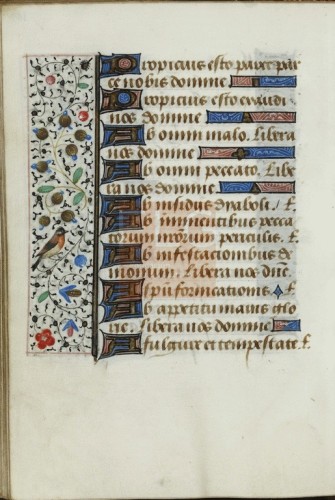 Propicius esto parce par
ce nobis domine
Propicius esto exaudi
nos domine
Ab omni malo. Libera
nos domine
Ab omni peccato. Libe
ra nos domine
Ab insidiis dyaboli. l.
Ab imminentibus pecca
torum nostrorum periculis. l.
Ab infestacionibus de
monum. Libera nos dne.
A spu fornicationis. l.
Ab appetitu inanis glo
rie. Libera nos domine
A fulgure et tempestate. l.